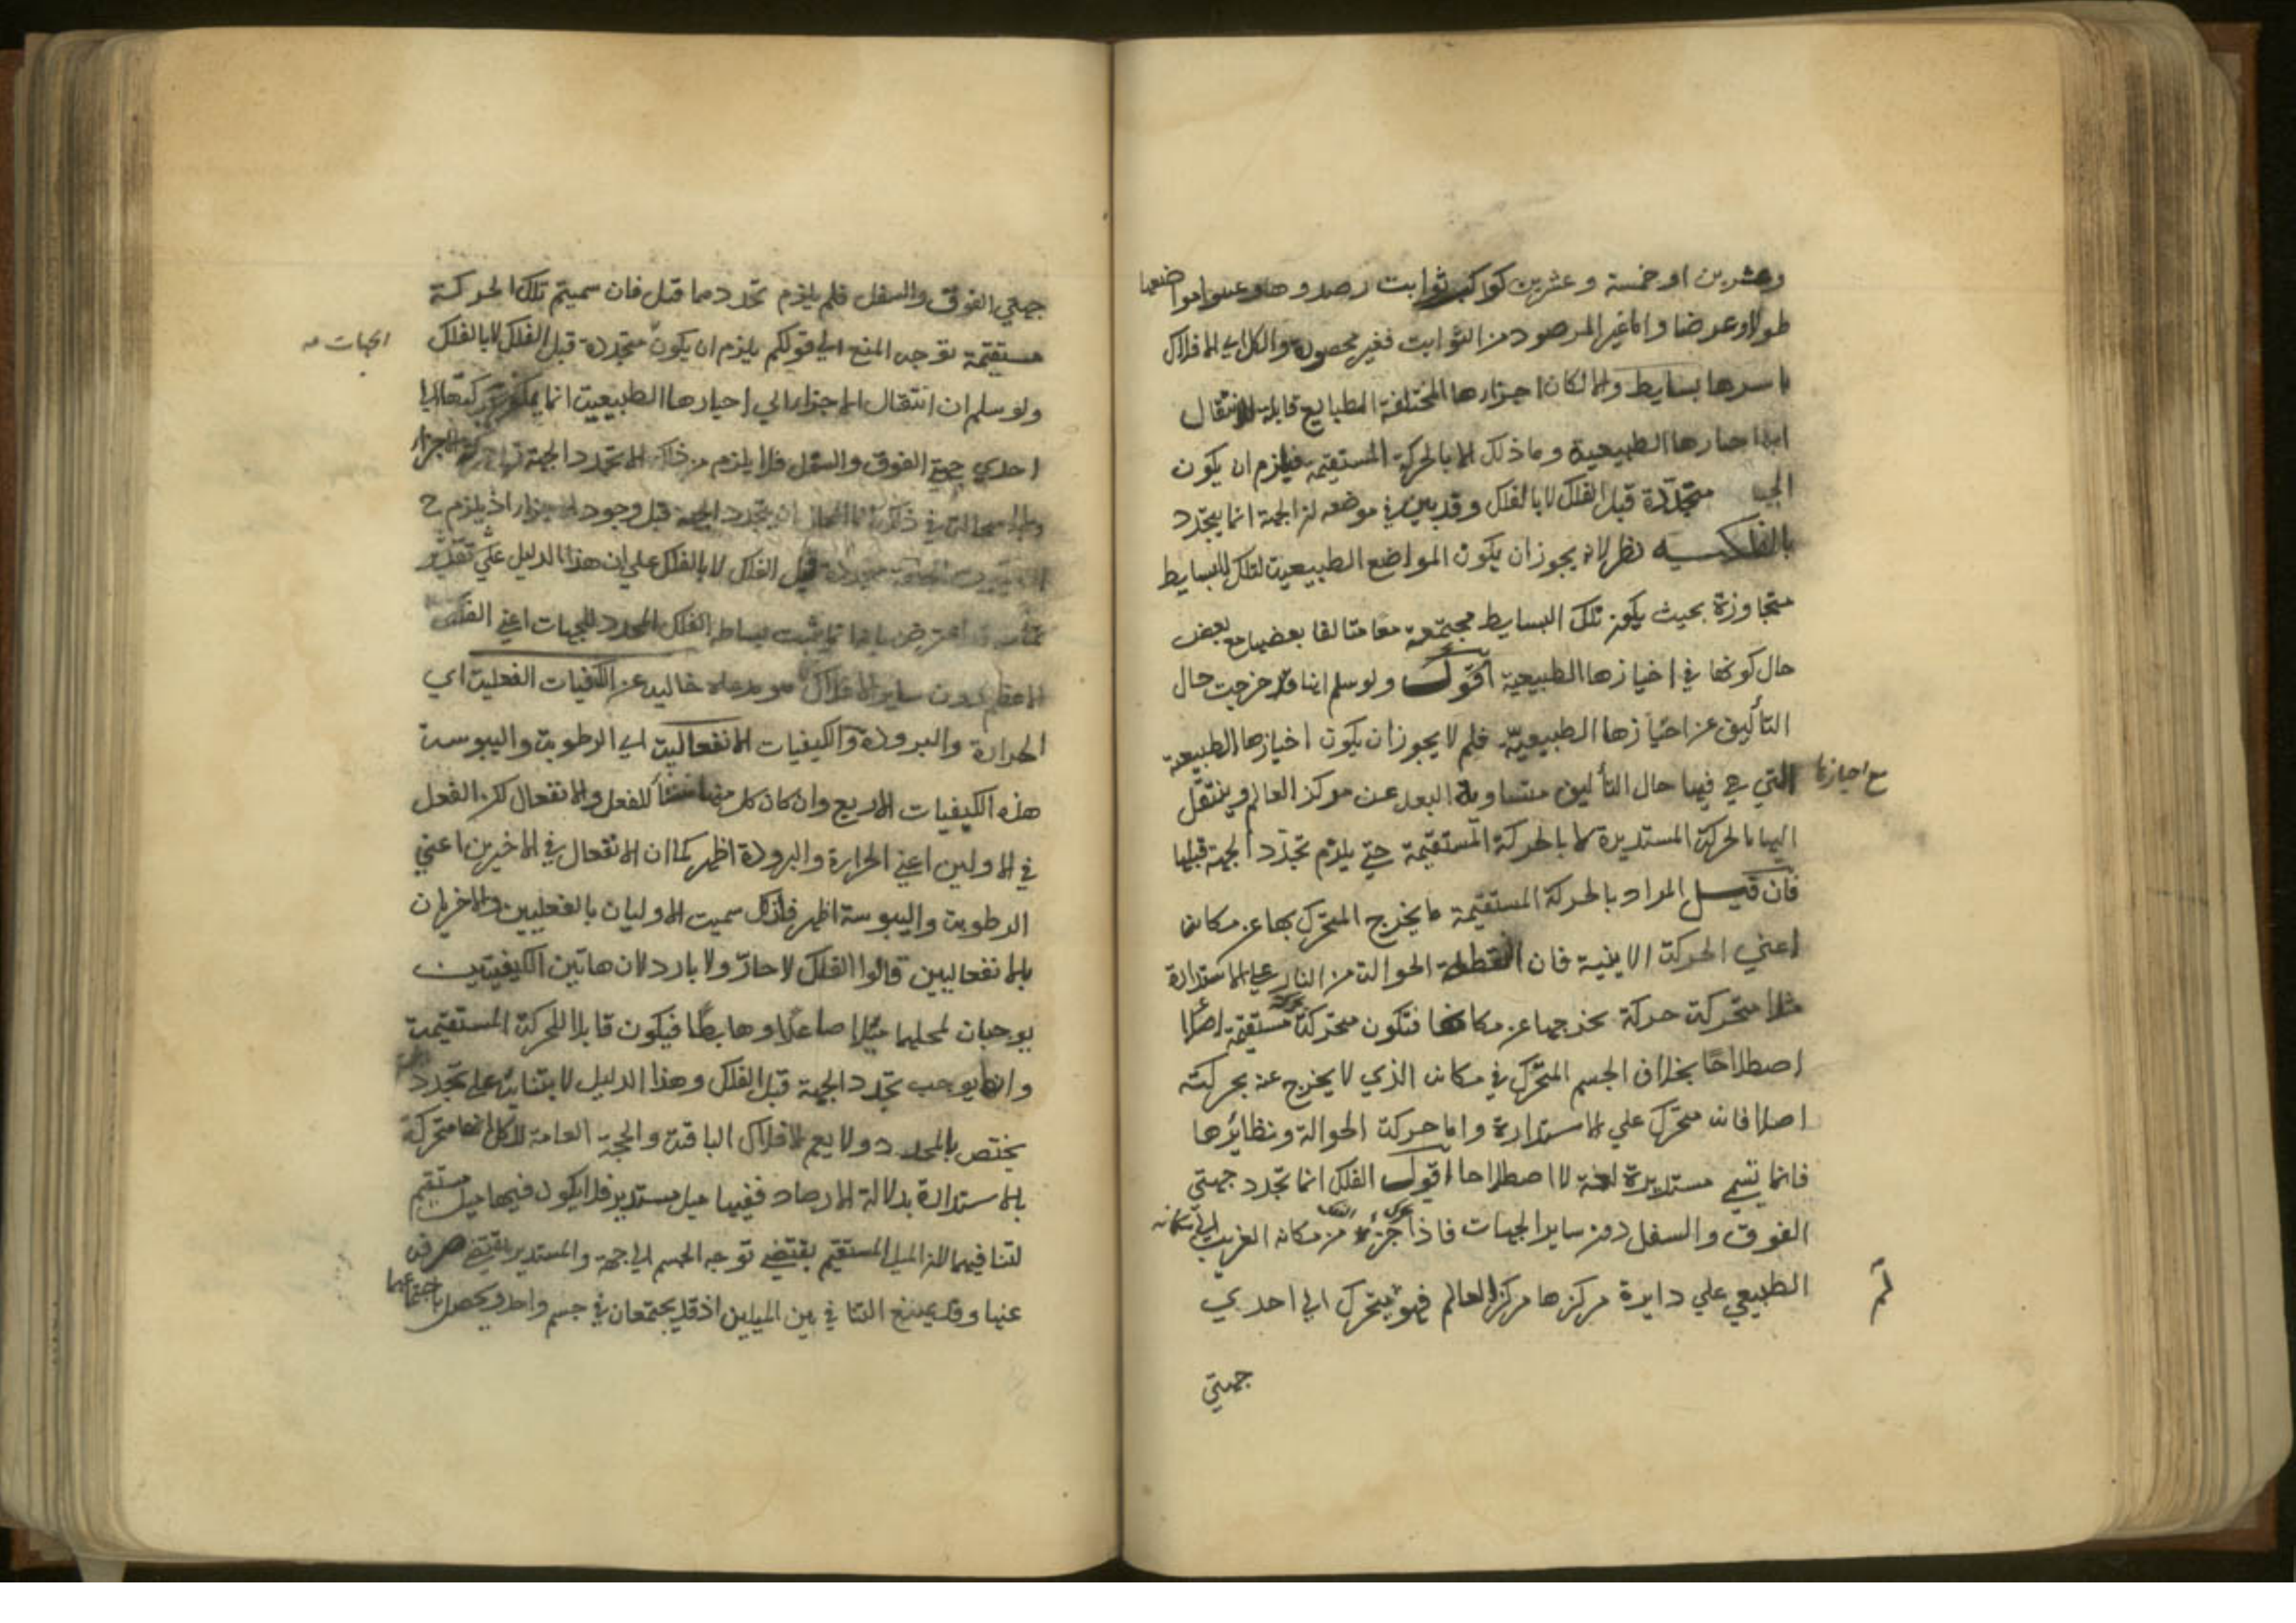 وعشرين او خمسة وعشرين كواكب ثوابت رصدوها وعينوا مواضعها
طولا وعرضا واما غير المرصود من الثوابت فغير محصورة والكل اي الافلاك
باسرها بسايط والا لكان اجزاءها المختلفة الطبايع قابلة للانتقال
الي احيازها الطبيعية وما ذلك الا بالحركة المستقيمة فيلزم ان يكون
الجهات متجددة قبل الفلك لا بالفلك وقد بين في موضعه ان الجهة انما يتجدد
بالفلك فيه نظر لانه يجوز ان يكون المواضع الطبيعية لتلك البسايط
متجاورة بحيث يكون تلك البسايط مجتمعة معا متالفا بعضها مع بعض
حال كونها في احيازها الطبيعية اقول ولو سلم انها قد خرجت حال
التأليف عن احيازها الطبيعية فلم لا يجوز ان يكون احيازها الطبيعية
مع احيازها
التي هي فيها حال التأليف متساوية البعد عن مركز العالم وينتقل
اليها بالحركة المستديرة لا بالحركة المستقيمة حتي يلزم تجدد الجهة قبلها
فان قيل المراد بالحركة المستقيمة ما يخرج المتحرك بها عن مكانه
اعني الحركة الاينية فان النقطة الحوالة من النار علي الاستدارة
مثلا متحركة حركة تخرجها عن مكانها فتكون متحركة حركة مستقيمة
اصطلاحا بخلاف الجسم المتحرك في مكانه الذي لا يخرج عنه بحركته
اصلا فانه متحرك علي الاستدارة واما حركة الحوالة ونظائرها
فانما تسمي مستديرة لغة لا اصطلاحا اقول الفلك انما تجدد جهتي
الفوق والسفل دون ساير الجهات فاذا تحرك جزء من مكانه الغريب الي مكانه
الطبيعي علي دايرة مركزها مركز العالم فهو يتحرك الي احدي
لم
جهتي
جهتي الفوق والسفل فلم يلزم تجددهما قبل فان سميتم تلك الحركة
مستقيمة توجه المنع الي قولكم يلزم ان يكون متجددة قبل الفلك لا بالفلك
الجهات
ولو سلم ان انتقال الاجزاء الي احيازها الطبيعية انما يمكن بحركتها الي
احدي جهة الفوق والسفل فلا يلزم من ذلك الا تجدد الجهة قبل حركة الاجزاء
ولا استحالة في ذلك انما المحال ان يتجدد الجهة قبل وجود الاجزاء اذ يلزم ح
قبل الفلك لا بالفلك علي ان هذا الدليل علي تقدير
تمامه بانما يثبت بساطة الفلك المحدد للجهات اعني الفلك
الاعظم دون ساير الافلاك خالية عن الكيفيات الفعلية اي
الحرارة والبرودة والكيفيات الانفعالية اي الرطوبة واليبوسة
هذه الكيفيات الاربع وان كان كل منها منشأ للفعل والانفعال لكن الفعل
في الاولين اعني الحرارة والبرودة اظهر كما ان الانفعال في الاخيرين اعني
الرطوبة واليبوسة اظهر فلذلك سميت الاوليان بالفعليين والاخريان
بالانفعاليين قالوا الفلك لا حار ولا بارد لان هاتين الكيفيتين
يوجبان لمحلهما ميلا صاعدا وهابطا فيكون قابلا للحركة المستقيمة
وانه يوجب تجدد الجهة قبل الفلك وهذا الدليل لابتنائه علي تجدد
يختص بالمحدد ولا يعم الافلاك الباقية والحجة العامة للكل انها متحركة
بالاستدارة بدلالة الارصاد ففيها ميل مستدير فلا يكون فيها ميل مستقيم
لتنافيهما لان الميل المستقيم يقتضي توجه الجسم الي جهة والمستدير يقتضي صرفه
عنها وقد يمنع التنافي بين الميلين اذ قد يجتمعان في جسم واحد ويحصل باجتماعهما